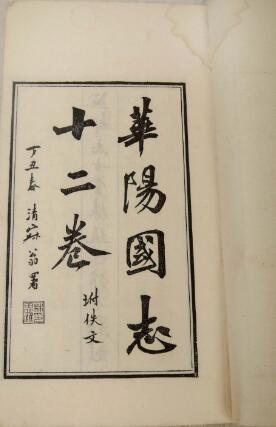 華陽國志
十二卷
坿佚文
丁丑春 清寐翁署